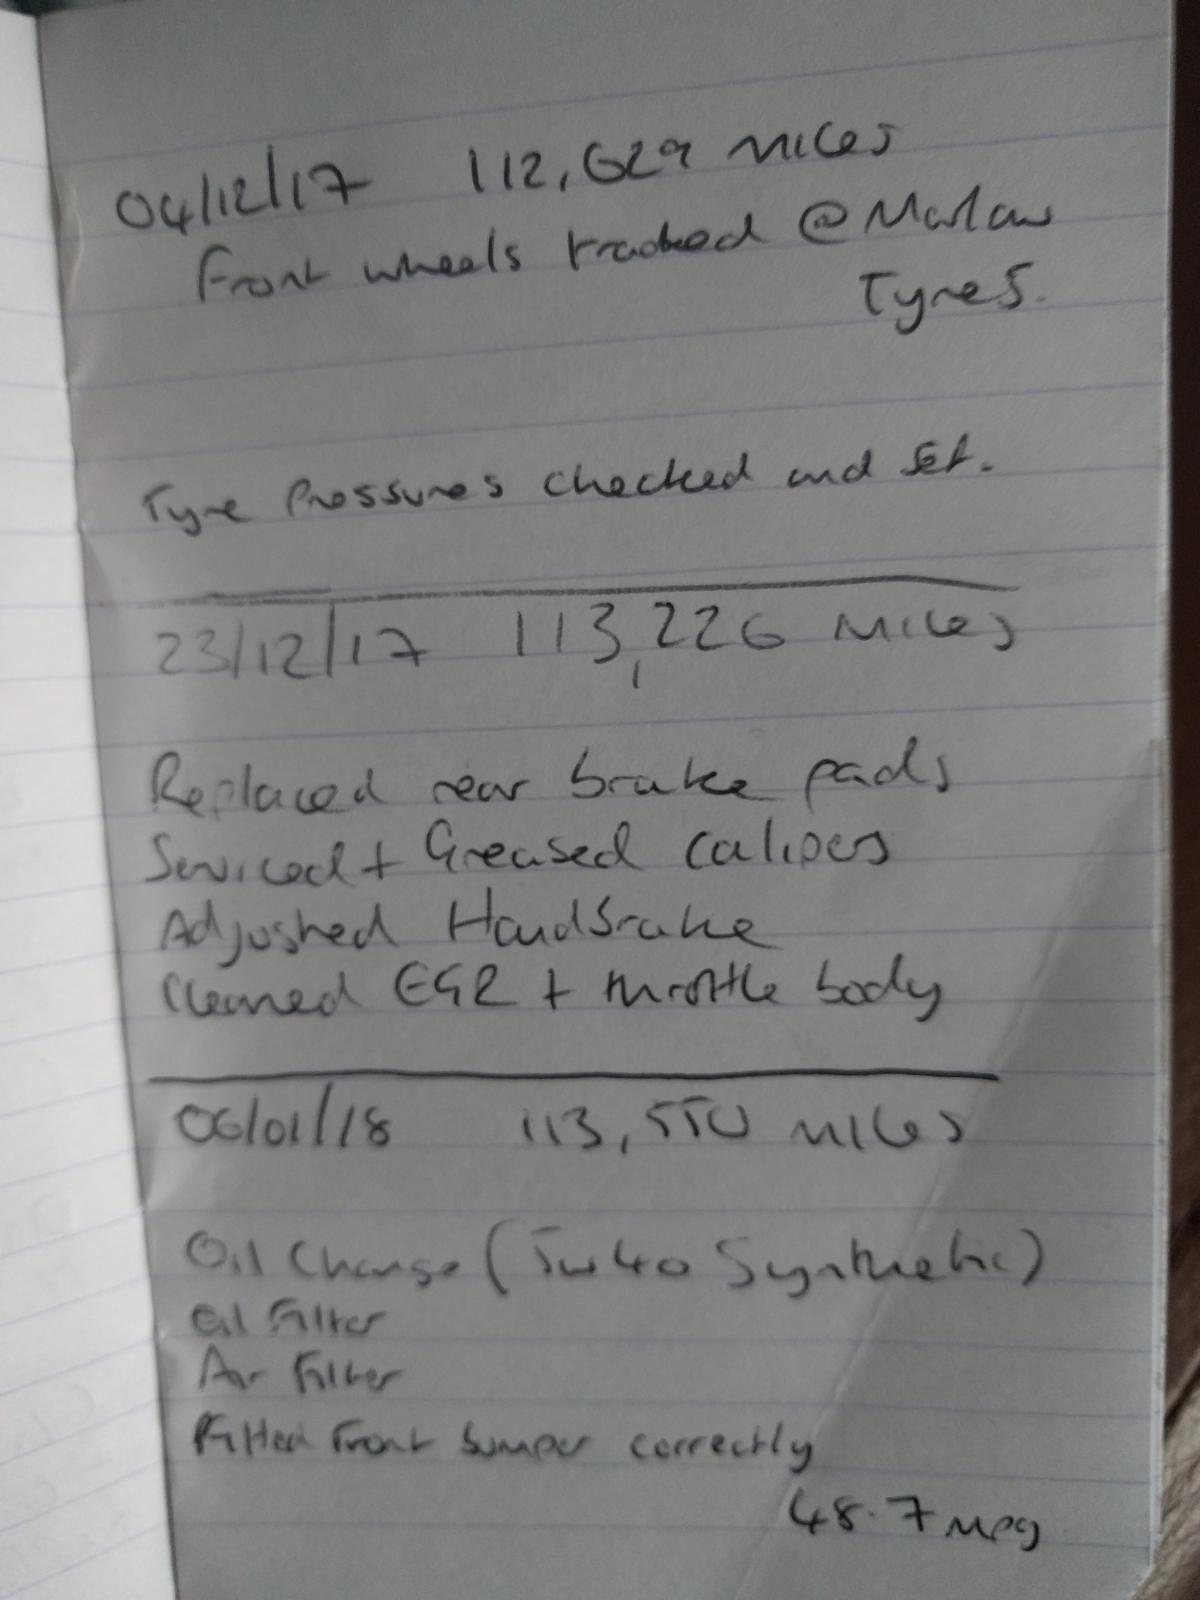 04/12/17 112,629 miles
Front wheels tracked @ Marlow
Tyres.
Tyre Pressures checked and set.
23/12/17 113,226 miles
Replaced rear brake pads
Serviced + Greased calipers
Adjusted Handbrake
Cleaned EGR + throttle body
06/01/18 113,550 miles
Oil Change (5w40 Synthetic)
Oil Filter
Air Filter
Fitted Front bumper correctly
48.7 mpg